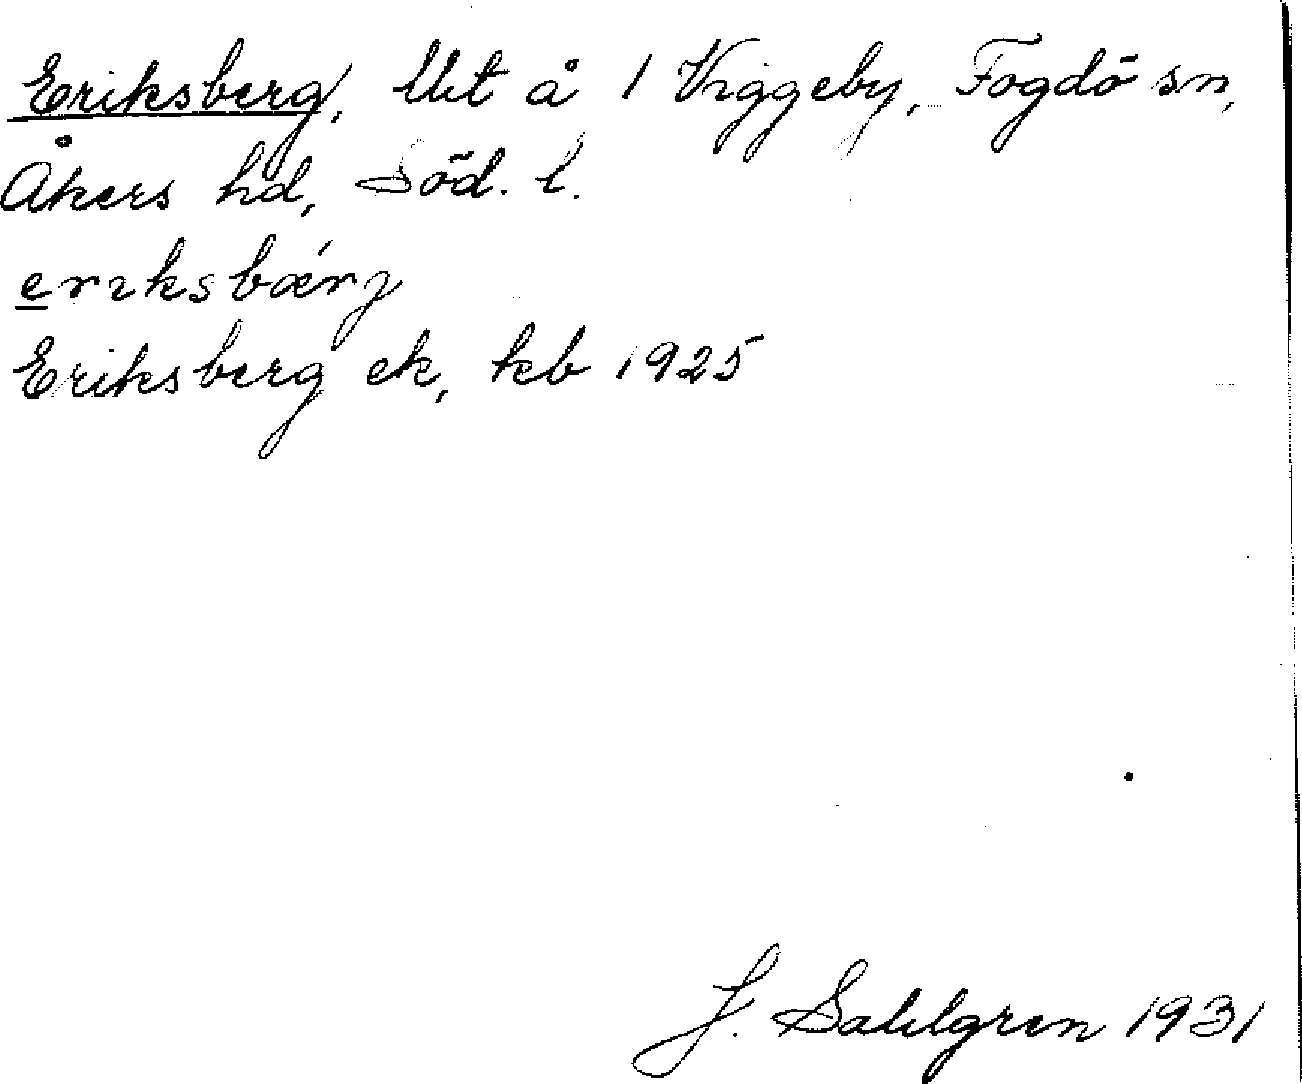 Eriksberg, Uht å 1 Viggeby, Fogdö sn,
Åkers hd, Söd. l.
erıksbǽrj
Eriksberg ek, kb 1925
J. Sahlgren 1931